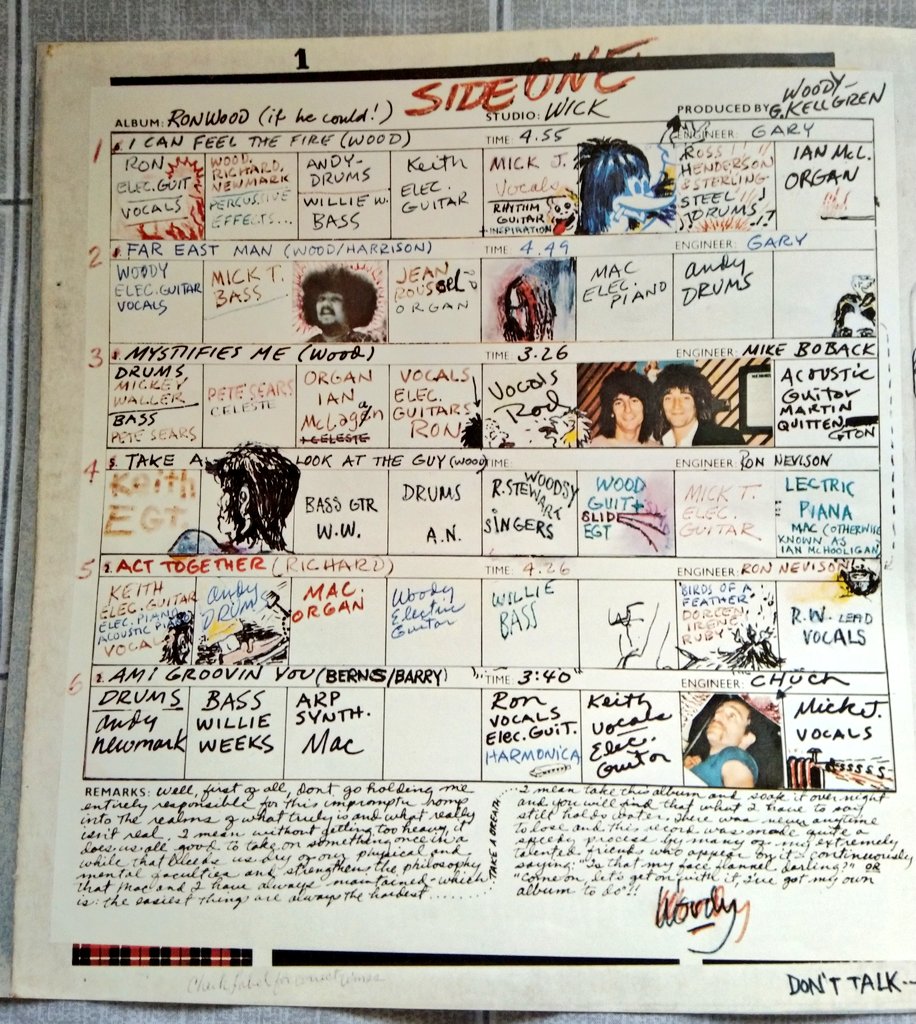 1
SIDE ONE
ALBUM: RON WOOD (if he could!) STUDIO: WICK PRODUCED BY WOODY- G. KELLGREN
1 I CAN FEEL THE FIRE (WOOD) TIME: 4.55 ENGINEER: GARY
RON ELEC. GUIT VOCALS
WOOD, RICHARD, NEWMARK PERCUSSIVE EFFECTS...
ANDY- DRUMS WILLIE W. BASS
Keith ELEC. GUITAR
MICK J. Vocals RHYTHM GUITAR + INSPIRATION
ROSS HENDERSON & STERLING STEEL DRUMS!
IAN McL. ORGAN
2 FAR EAST MAN (WOOD/HARRISON) TIME: 4.49 ENGINEER: GARY
WOODY ELEC. GUITAR VOCALS
MICK T. BASS
JEAN ROUSSEL ORGAN
MAC ELEC. PIANO
andy DRUMS
3 MYSTIFIES ME (Wood) TIME 3.26 ENGINEER: MIKE BOBACK
DRUMS MICKEY WALLER BASS PETE SEARS
PETE SEARS CELESTE
ORGAN IAN McLagan + CELESTE
VOCALS ELEC. GUITARS RON
Vocals Rod
ACOUSTIC Guitar MARTIN QUITTENGTON
4 TAKE A LOOK AT THE GUY (WOOD) TIME: ENGINEER: RON NEVISON
Keith EGT
BASS GTR W.W.
DRUMS A.N.
R. STEWART WOODSY SINGERS
WOOD GUIT + SLID EGT
MICK T. ELEC. GUITAR
LECTRIC PIANA MAC (OTHERWISE KNOWN AS IAN McHOOLIGAN)
5 ACT TOGETHER (RICHARD) TIME: 4.26 ENGINEER: RON NEVISON
KEITH ELEC. GUITAR ELEC. PIANO ACOUSTIC PIANO VOCAL
andy DRUMS
MAC. ORGAN
Woody Electric Guitar
WILLIE BASS
BIRDS OF A FEATHER DOREEN, IRENE RUBY
R.W. LEAD VOCALS
6 AM I GROOVIN YOU (BERNS/BARRY) TIME: "3:40" ENGINEER: CHUCH
DRUMS andy newmark
BASS WILLIE WEEKS
ARP SYNTH. Mac
Ron VOCALS Elec. Guit. HARMONICA
Keith Vocals Elec. Guitar
Mick J. VOCALS
SSSSSS
REMARKS: Well, first of all, dont go holding me
entirely responsible for this impromptu romp
into the realms of what truly is and what really
isn't real. I mean without getting too heavy, it
does us all good to take on something once in a
while that bleeds us dry of our physical and
mental faculties and strengthens the philosophy
that Mac and I have always maintained - which
is: the easiest thing are always the hardest........
TAKE A BREATH
I mean take this album and soak it over night
and you will find that what I have to say
still holds water. There was never anytime
to lose and this record was made quite a
speedy process by many of my extremely
talented friends who appear on it - continuously
saying: "Is that my channel darling?" OR
"Come on, let's get on with it, I've got my own
album to do"!!
Woody
Check label for correct times
DON'T TALK--